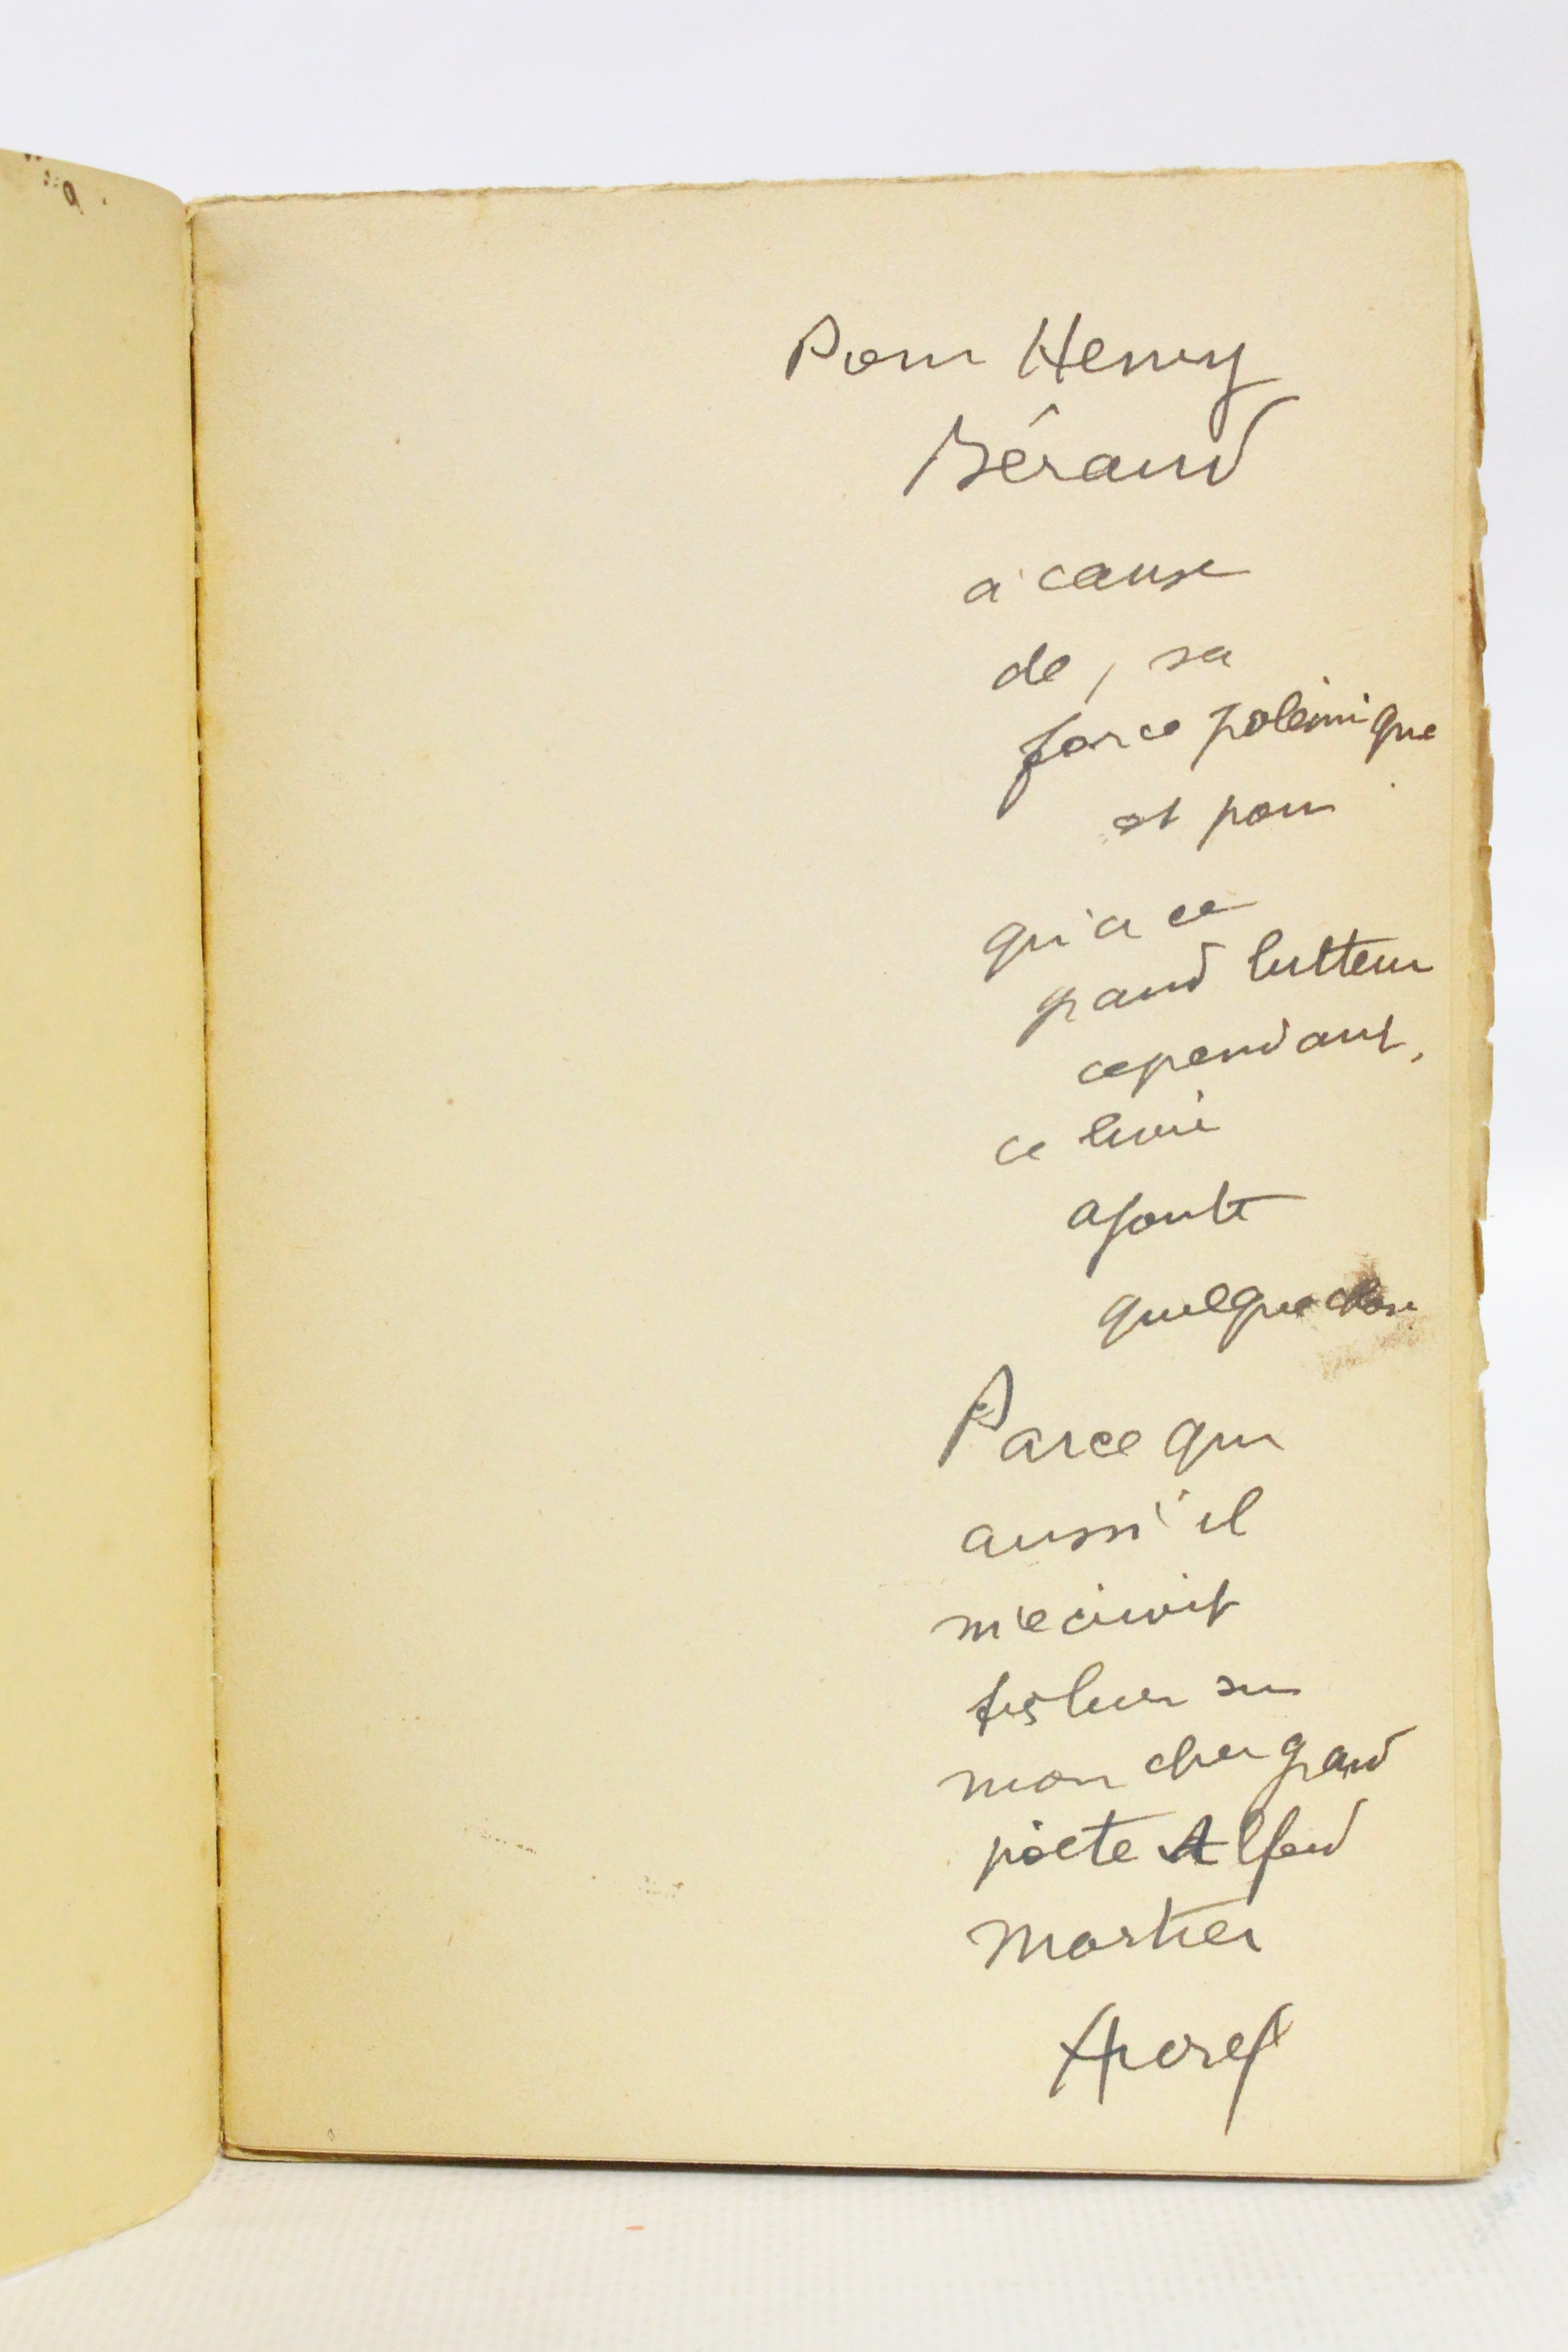 Pour Henry
Béraud
à cause
de, sa
force polémique
et pour
qu'à ce
grand lutteur
cependant,
ce livre
ajoute
quelque chose
Parce que
aussi il
m'écrivit
sur
mon cher grand
poète Alfred
Mortier